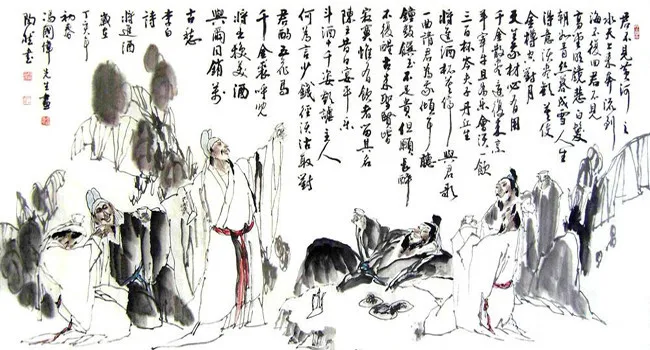 君不見黄河之
水天上来奔流到
海不復回君不見
高堂明鏡悲白髮
朝如青丝暮成雪人生
得意須尽歡莫使
金樽空對月
天生我材必有用
千金散尽還復来烹
羊宰牛且為乐會須一飲
三百杯岑夫子丹丘生
將進酒杯莫停與君歌
一曲請君為我傾耳聽
鐘鼓饌玉不足貴但願長醉
不復醒古来聖賢皆
寂寞惟有飲者留其名
陳王昔日宴平乐
斗酒十千恣歡謔主人
何為言少錢徑須沽取對
君酌五花馬
千金裘呼兒
將出换美酒
與爾同銷萬
古愁
李白
詩
將進酒
歲在
丁亥年
初春
馮國偉先生畫